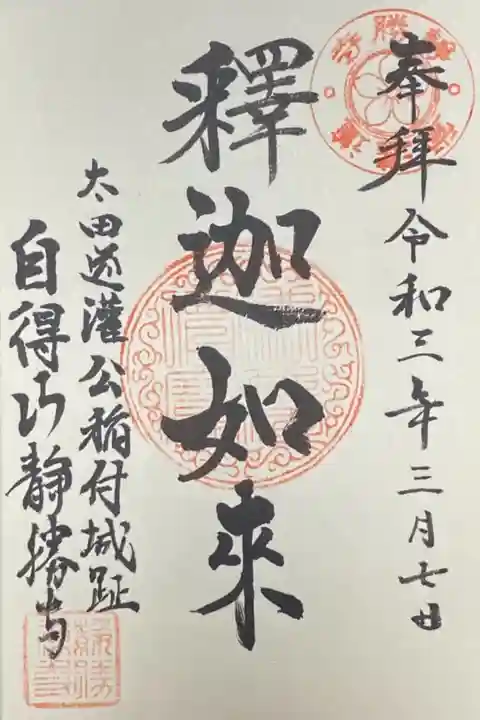 奉拜 令和三年三月七日
釋迦如來
太田道灌公稲付城趾
自得山静勝寺